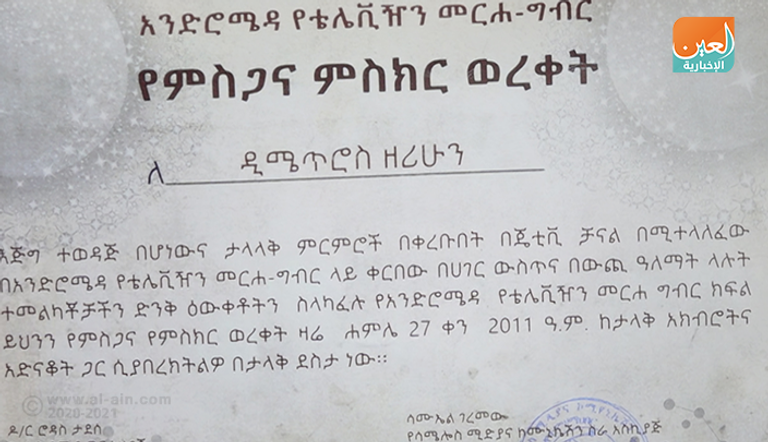 አንድሮሜዳ የቴሌቪዥን መርሐ-ግብር
العين
الإخبارية
የምስጋና ምስክር ወረቀት
ለ ዲሜጥሮስ ዘሪሁን
እጅግ ተወዳጅ በሆነውና ታላላቅ ምርምሮች በቀረቡበት በጄቲቪ ቻናል በሚተላለፈው
በአንድሮሜዳ የቴሌቪዥን መርሐ-ግብር ላይ ቀርበው በሀገር ውስጥና በውጪ ዓለማት ላሉት
ተመልካቾቻችን ድንቅ ዕውቀቶትን ስላካፈሉ የአንድሮሜዳ የቴሌቪዥን መርሐ ግብር ክፍል
ይህንን የምስጋና የምስክር ወረቀት ዛሬ ሐምሌ 27 ቀን 2011 ዓ.ም. ከታላቅ አክብሮትና
አድናቆት ጋር ሲያበረክትልዎ በታላቅ ደስታ ነው።
© www.al-ain.com
2020-2021
ዶ/ር ሮዳስ ታደሰ
ሳሙኤል ገረመው
የሳሜሎስ ሚድያና ኮሙኒኬሽን ስራ አስኪያጅ